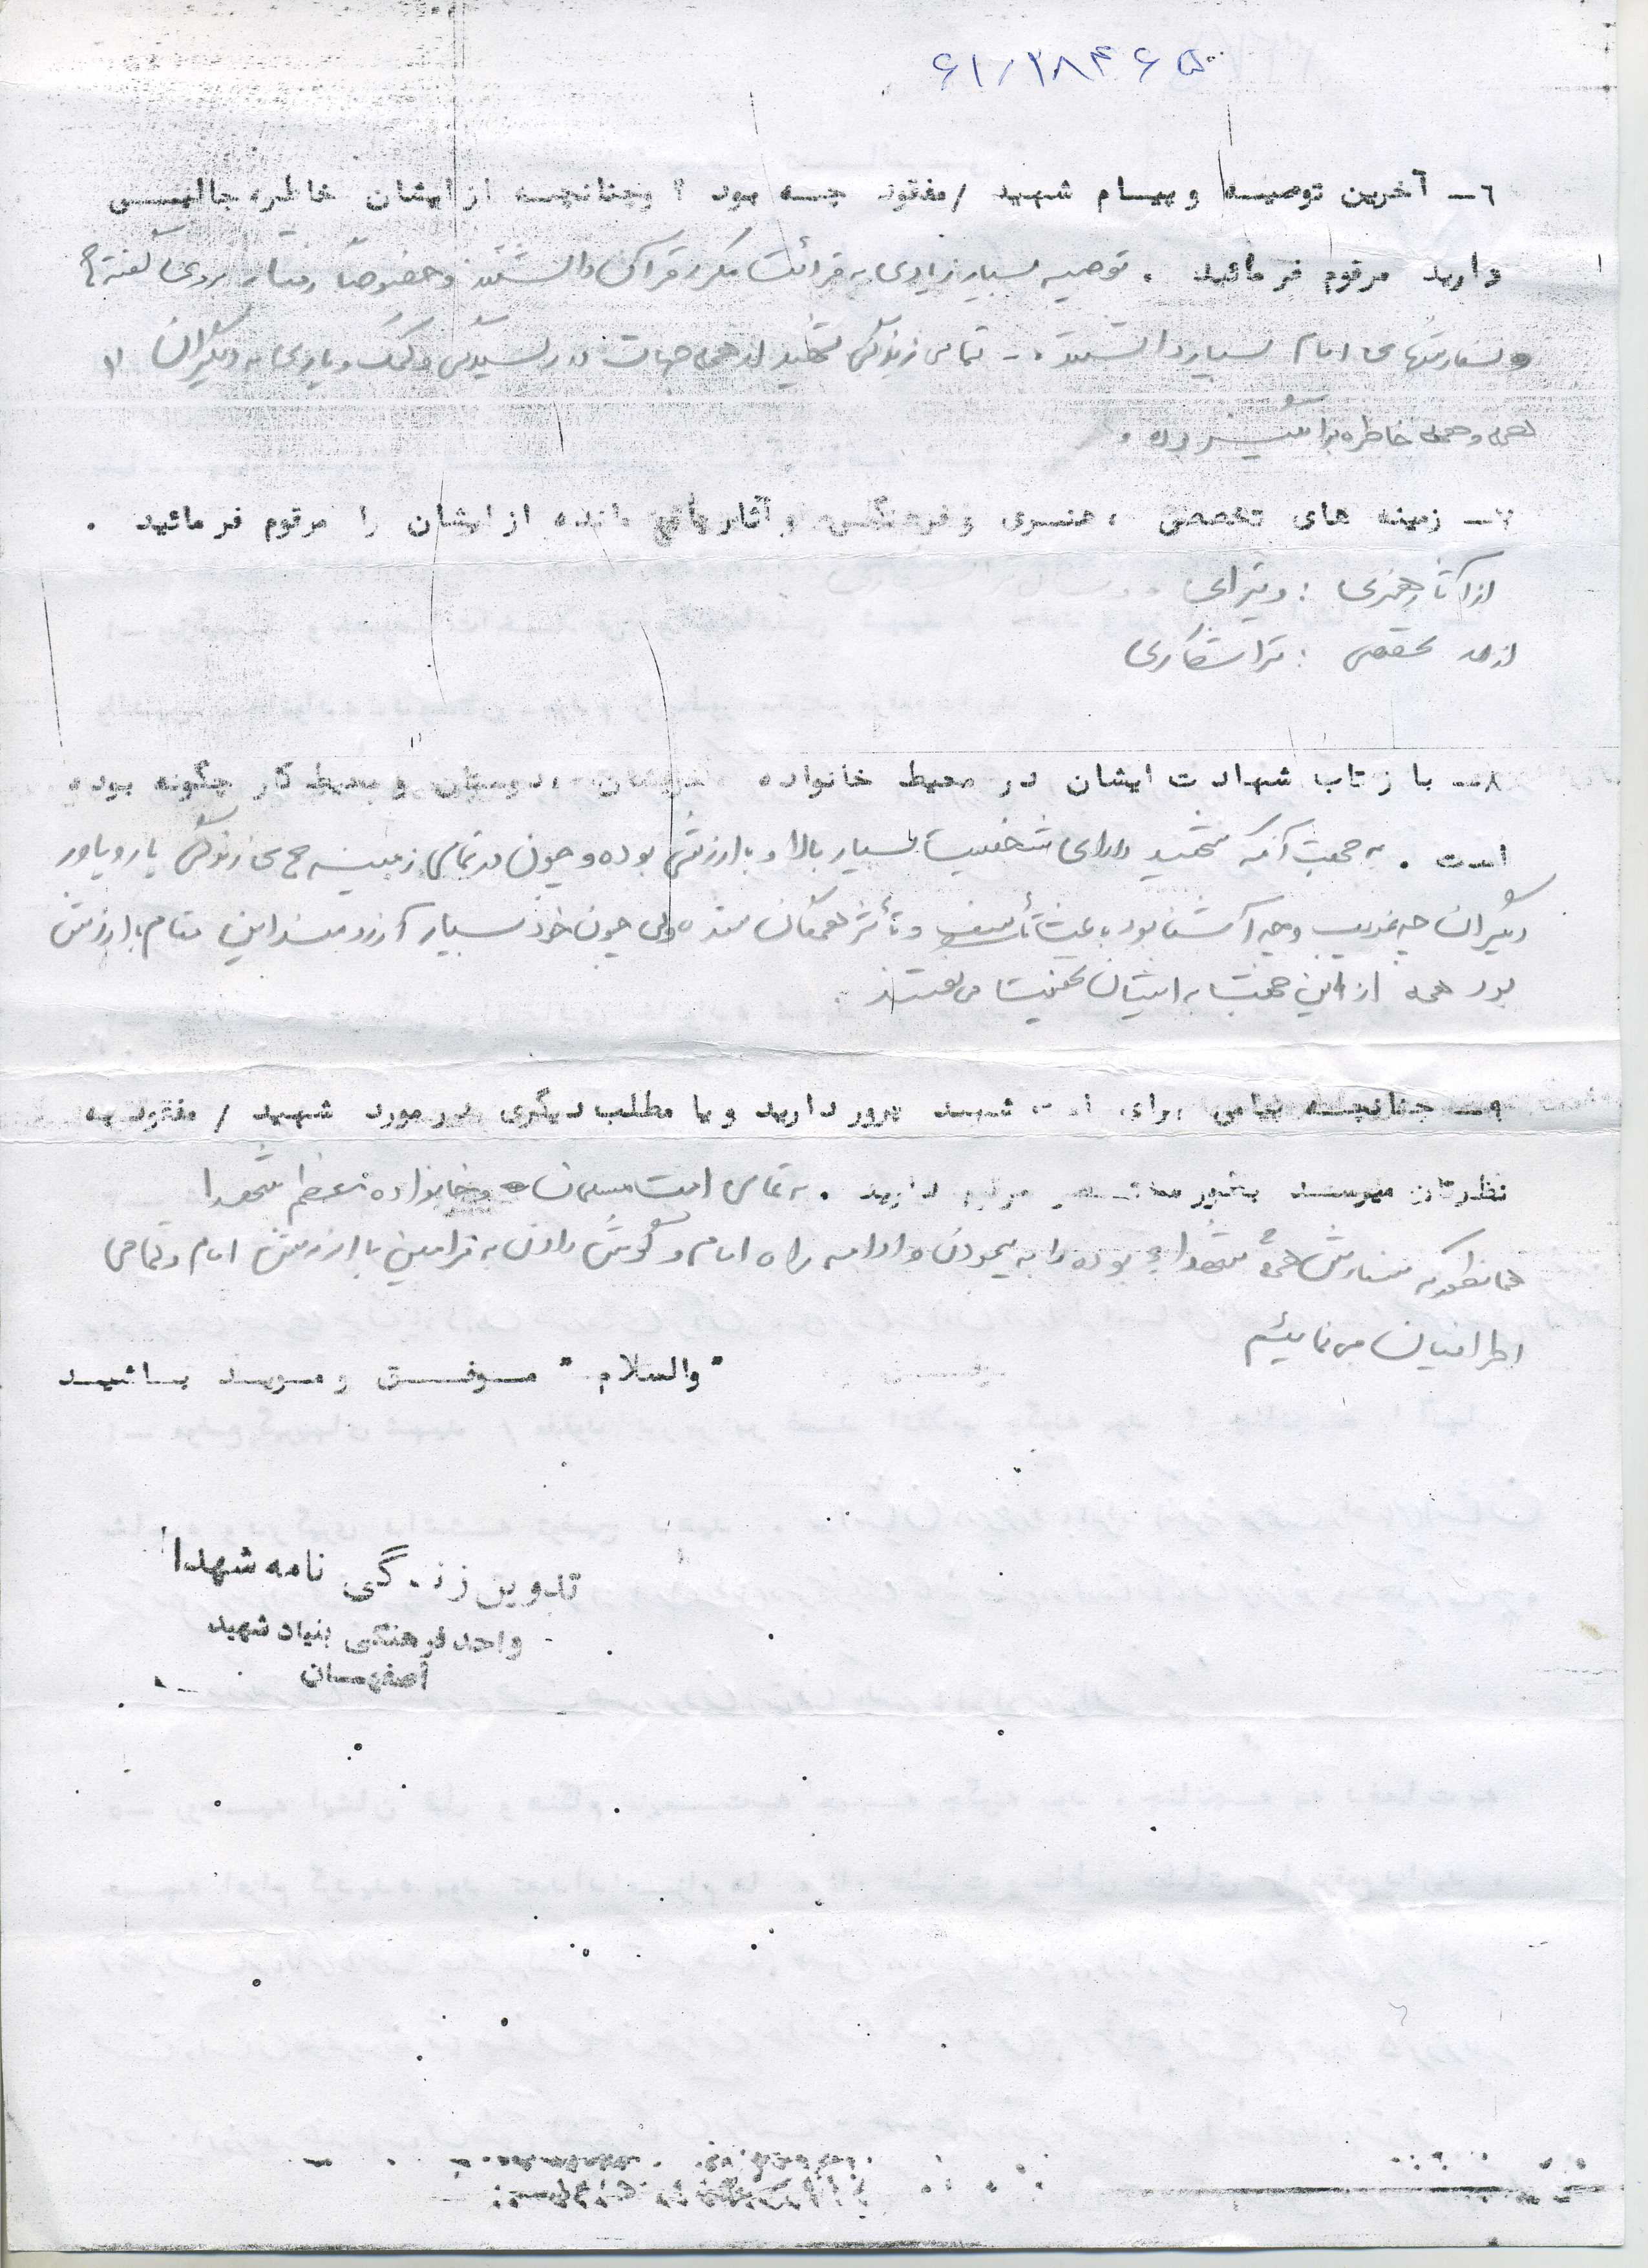 ۶۱/۲۸۴۶۵
٦ــ آخرین توصیـه و پیـام شهید /مفقود چـه بود ؟ وچنانچـه از ایشان خاطره جالبـی
دارید مرقوم فرمائید . توصیه بسیار زیادی به قرائت مکرر قرآن داشتند وخصوصاً رفتار بروی گفته ها
و سفارشهای امام بسیار داشتند .ـ تمامی زندگی شهید از همه جهات در رسیدگی و کمک و یاری به دیگران
همه و همه خاطره برانگیز بوده .
٧ــ زمینه های تخصصی ، هنـری و فرهنگـی و آثار باقی مانده از ایشان را مرقوم فرمائید .
از آثار هنری : ویترای
از تخصصی : تراشکاری
٨ــ بازتاب شهادت ایشان در محیط خانواده خویشان ، دوستان و محیط کار چگونه بوده
است . به جهت آنکه شهید دارای شخصیت بسیار بالا و باارزشی بوده و چون در تمامی زمینه های زندگی یار و یاور
دیگران چه غریب و چه آشنا بود باعث تأسف و تأثر همگان شده ولی چون خود بسیار آرزومند این مقام باارزش
بود همه از این جهت به ایشان تهنیت می گفتند .
٩ــ چنانچـه پیامی برای امت شهید پرور دارید و یا مطلب دیگری در مورد شهید / مفقود به
نظرتان میرسد بطور مختصر مرقوم دارید . به تمامی امت مسلمان و خانواده معظم شهدا
همانطور که سفارش همهٔ شهداء بوده را به پیمودن و ادامه راه امام و گوش دادن به فرامین باارزش امام و تمامی
اطرافیان می نمایئم
"والسلام" مـوفـق و مـویـد بـاشیـد
تدوین زندگی نامه شهدا
واحد فرهنگی بنیاد شهید
اصفهـان